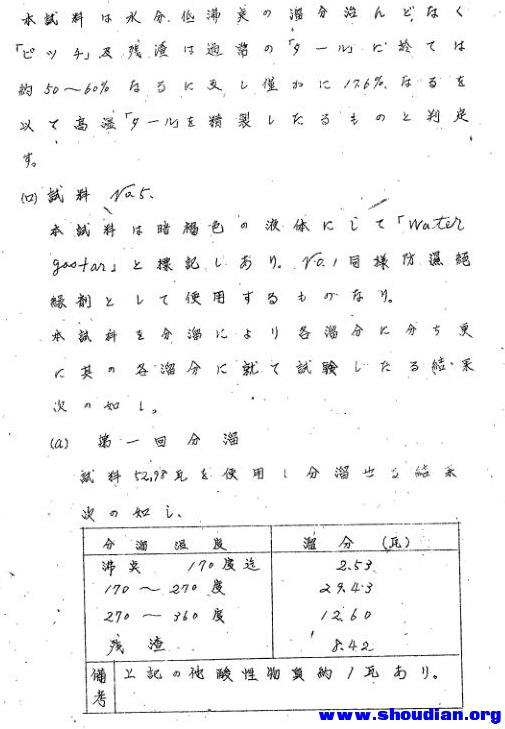 本試料は水分、低沸点の溜分殆んどなく
「ピッチ」及残渣は通常の「タール」に於ては
約50〜60%なるに反し僅かに17.6%なるを
以て高温「タール」を精製したるものと判定
す。
(ロ) 試料 No.5、
本試料は暗褐色の液体にして「Water
gastar」と標記しあり。No.1同様防濕絶
緣剤として使用するものなり。
本試料を分溜により各溜分に分ち更
に其の各溜分に就て試験したる結果
次の如し。
(a) 第一回分溜
試料52.98瓦を使用し分溜せる結果
次の如し、
分溜温度 溜分(瓦)
沸点 170度迄 2.53
170〜270度 29.43
270〜360度 12.60
残渣 8.42
備考 上記の他酸性物質約1瓦あり。
www.shoudian.org